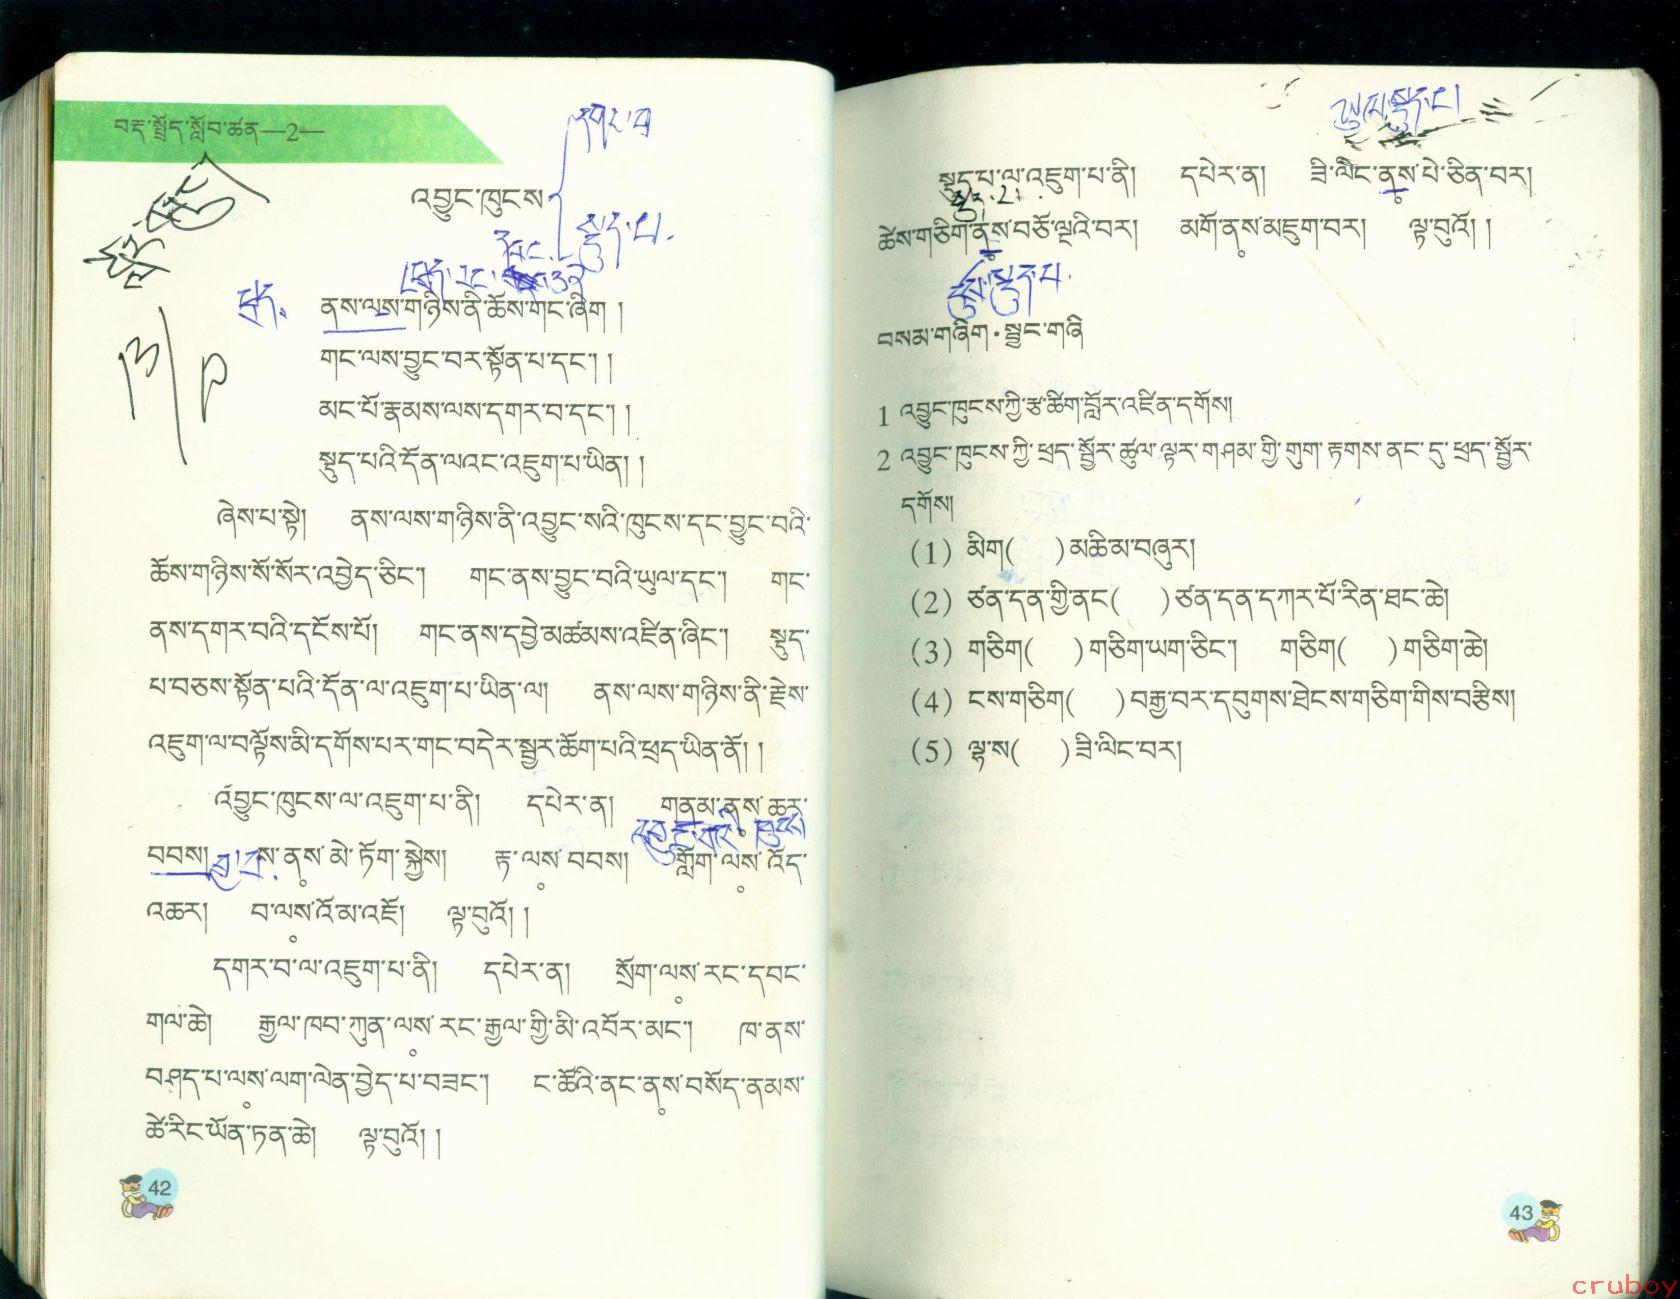 བརྡ་སྤྲོད་སློབ་ཚན—2—
འབྱུང་ཁུངས
དགར་བ
སྡུད་པ.
ནས་ལས་གཉིས་ནི་ཆོས་གང་ཞིག །
གང་ལས་བྱུང་བར་སྟོན་པ་དང་། །
མང་པོ་རྣམས་ལས་དགར་བ་དང་། །
སྡུད་པའི་དོན་ལའང་འཇུག་པ་ཡིན། །
ཞེས་པ་སྟེ། ནས་ལས་གཉིས་ནི་འབྱུང་སའི་ཁུངས་དང་བྱུང་བའི་
ཆོས་གཉིས་སོ་སོར་འབྱེད་ཅིང་། གང་ནས་བྱུང་བའི་ཡུལ་དང་། གང་
ནས་དགར་བའི་དངོས་པོ། གང་ནས་དབྱེ་མཚམས་འཛིན་ཞིང་། སྡུད་
པ་བཅས་སྟོན་པའི་དོན་ལ་འཇུག་པ་ཡིན་ལ། ནས་ལས་གཉིས་ནི་རྗེས་
འཇུག་ལ་བལྟོས་མི་དགོས་པར་གང་བདེར་སྦྱར་ཆོག་པའི་ཕྲད་ཡིན་ནོ། །
འབྱུང་ཁུངས་ལ་འཇུག་པ་ནི། དཔེར་ན། གནམ་ནས་ཆར་
བབས། ས་ནས་མེ་ཏོག་སྐྱེས། རྟ་ལས་བབས། གློག་ལས་འོད་
འཆར། བ་ལས་འོ་མ་འཇོ། ལྟ་བུའོ། །
དགར་བ་ལ་འཇུག་པ་ནི། དཔེར་ན། སྲོག་ལས་རང་དབང་
གལ་ཆེ། རྒྱལ་ཁབ་ཀུན་ལས་རང་རྒྱལ་གྱི་མི་འབོར་མང་། ཁ་ནས་
བཤད་པ་ལས་ལག་ལེན་བྱེད་པ་བཟང་། ང་ཚོའི་ནང་ནས་བསོད་ནམས་
ཚེ་རིང་ཡོན་ཏན་ཆེ། ལྟ་བུའོ། །
42
ཡུལ་སྡུད།
སྡུད་པ་ལ་འཇུག་པ་ནི། དཔེར་ན། ཟི་ལིང་ནས་པེ་ཅིན་བར།
ཚེས་གཅིག་ནས་བཅོ་ལྔའི་བར། མགོ་ནས་མཇུག་བར། ལྟ་བུའོ། །
བསམ་གཞིག་སྦྱང་གཞི
1 འབྱུང་ཁུངས་ཀྱི་རྩ་ཚིག་བློར་འཛིན་དགོས།
2 འབྱུང་ཁུངས་ཀྱི་ཕྲད་སྦྱོར་ཚུལ་ལྟར་གཤམ་གྱི་གུག་རྟགས་ནང་དུ་ཕྲད་སྦྱོར་
དགོས།
(1) མིག( )མཆི་མ་བཞུར།
(2) ཙན་དན་གྱི་ནང( )ཙན་དན་དཀར་པོ་རིན་ཐང་ཆེ།
(3) གཅིག( )གཅིག་ཡག་ཅིང་། གཅིག( )གཅིག་ཆེ།
(4) ངས་གཅིག( )བརྒྱ་བར་དབུགས་ཐེངས་གཅིག་གིས་བརྩིས།
(5) ལྷ་ས( )ཟི་ལིང་བར།
43
cruboy